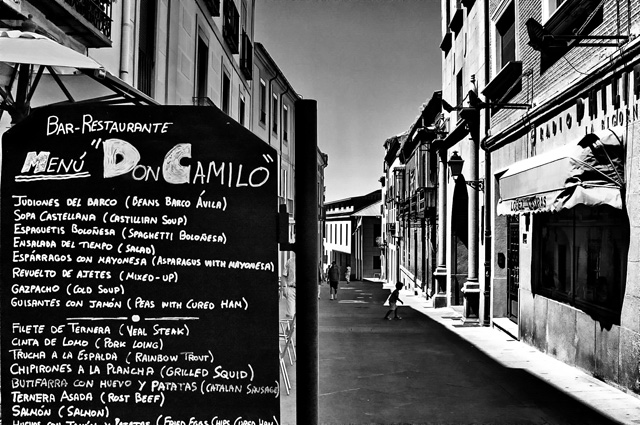 Bar-Restaurante
Menú "Don Camilo"
Judiones del Barco (Beans Barco Ávila)
Sopa Castellana (Castillian Soup)
Espaguetis Boloñesa (Spaghetti Boloñesa)
Ensalada del Tiempo (Salad)
Espárragos con Mayonesa (Asparagus with Mayonesa)
Revuelto de Ajetes (Mixed-up)
Gazpacho (Cold Soup)
Guisantes con Jamón (Peas with Cured Han)
Filete de Ternera (Veal Steak)
Cinta de Lomo (Pork Loing)
Trucha a la Espalda (Rainbow Trout)
Chipirones a la Plancha (Grilled Squid)
Butifarra con Huevo y Patatas (Catalan Sausage
Ternera Asada (Rost Beef)
Salmón (Salmon)
Huevos con Jamón y Patatas (Fried Eggs Chips Cured Han)
RADIO